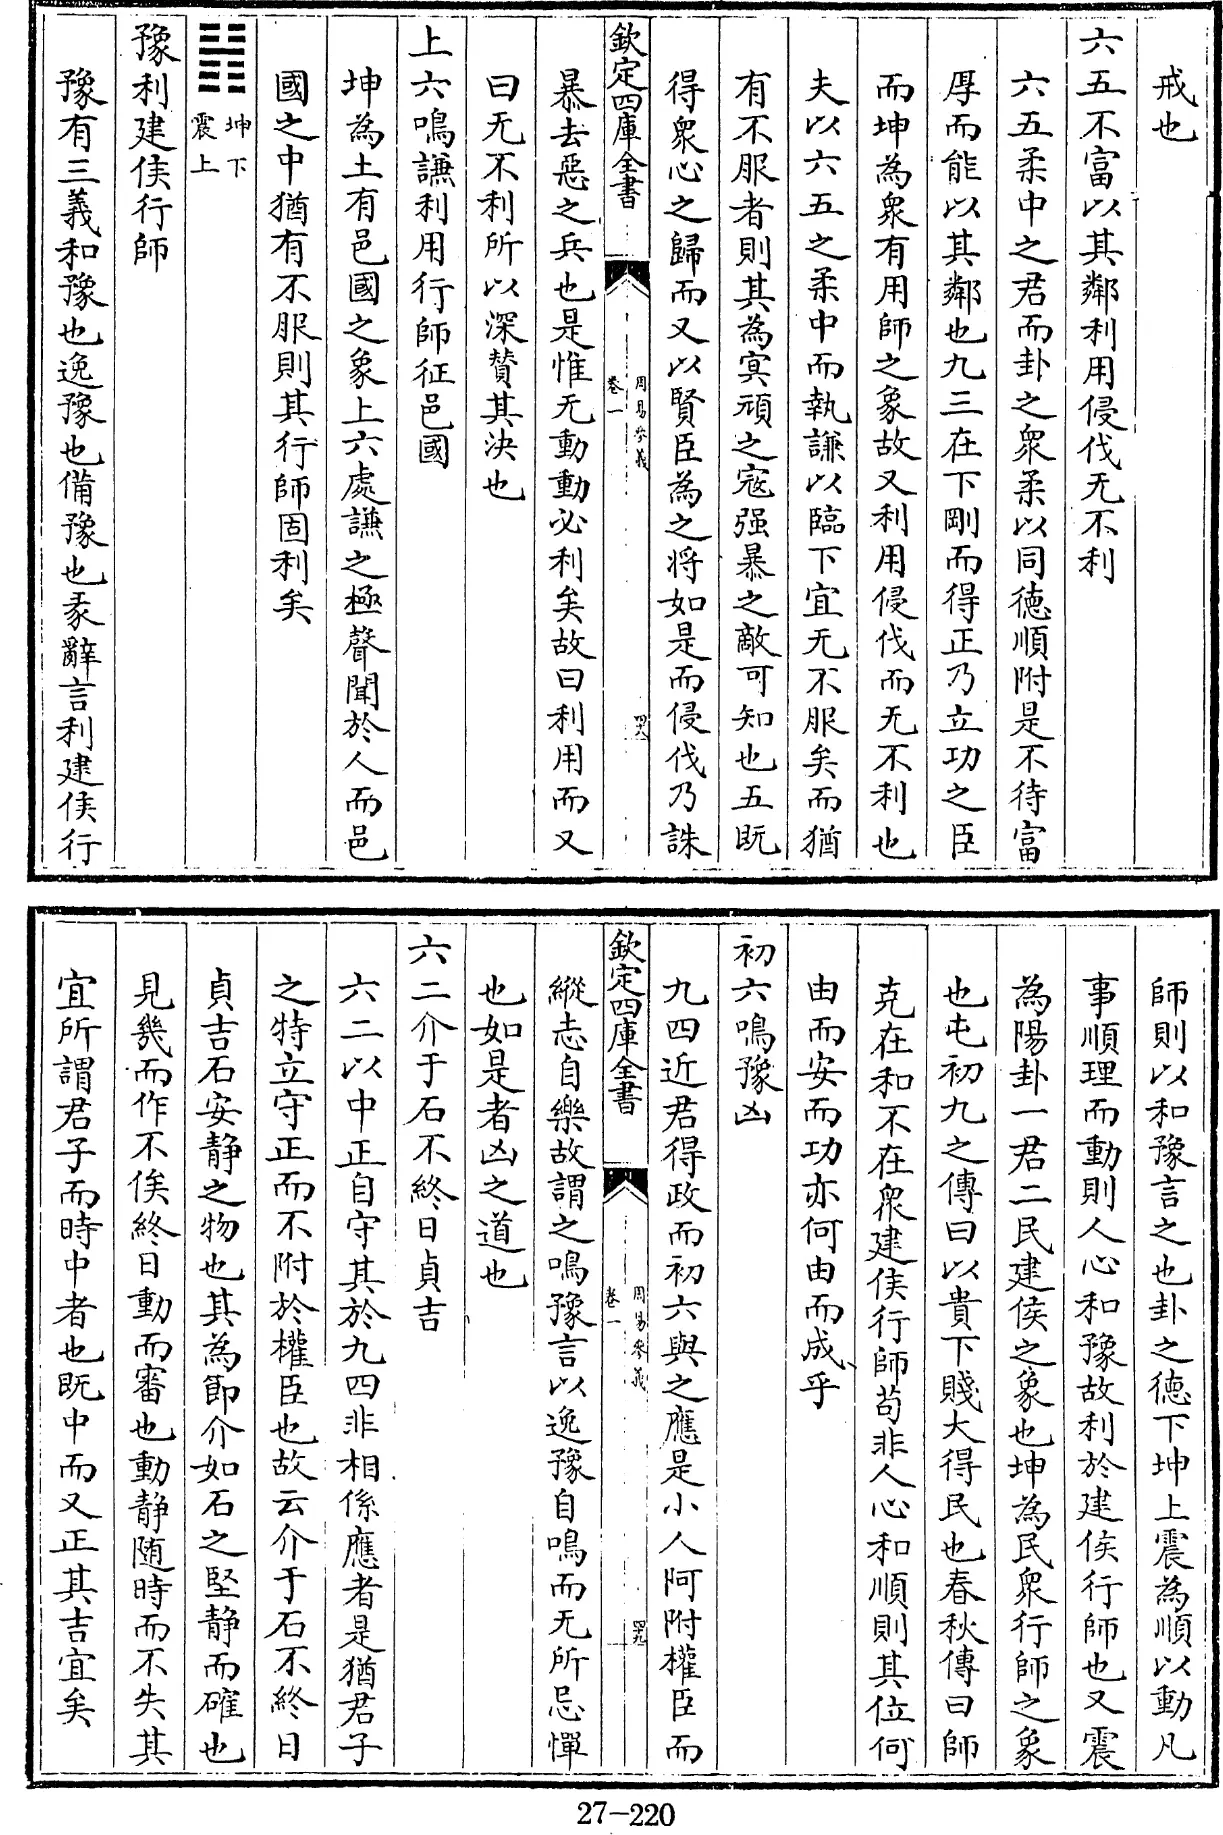 戒也
六五不富以其鄰利用侵伐无不利
六五柔中之君而卦之衆柔以同德順附是不待富
厚而能以其鄰也九三在下剛而得正乃立功之臣
而坤為衆有用師之象故又利用侵伐而无不利也
夫以六五之柔中而執謙以臨下宜无不服矣而猶
有不服者則其為寞頑之寇强暴之敵可知也五既
得衆心之歸而又以賢臣為之将如是而侵伐乃誅
欽定四庫全書
周易參義
卷一
四八
暴去惡之兵也是惟无動動必利矣故曰利用而又
曰无不利所以深贊其决也
上六鳴謙利用行師征邑國
坤為土有邑國之象上六處謙之極聲聞於人而邑
國之中猶有不服則其行師固利矣
坤下
震上
豫利建侯行師
豫有三義和豫也逸豫也備豫也彖辭言利建侯行
師則以和豫言之也卦之德下坤上震為順以動凡
事順理而動則人心和豫故利於建侯行師也又震
為陽卦一君二民建侯之象也坤為民衆行師之象
也屯初九之傳曰以貴下賤大得民也春秋傳曰師
克在和不在衆建侯行師苟非人心和順則其位何
由而安而功亦何由而成乎
初六鳴豫凶
九四近君得政而初六與之應是小人阿附權臣而
欽定四庫全書
周易參義
卷一
四九
縱志自樂故謂之鳴豫言以逸豫自鳴而无所忌憚
也如是者凶之道也
六二介于石不終日貞吉
六二以中正自守其於九四非相係應者是猶君子
之特立守正而不附於權臣也故云介于石不終日
貞吉石安靜之物也其為節介如石之堅靜而確也
見幾而作不俟終日動而審也動靜随時而不失其
宜所謂君子而時中者也既中而又正其吉宜矣
27-220